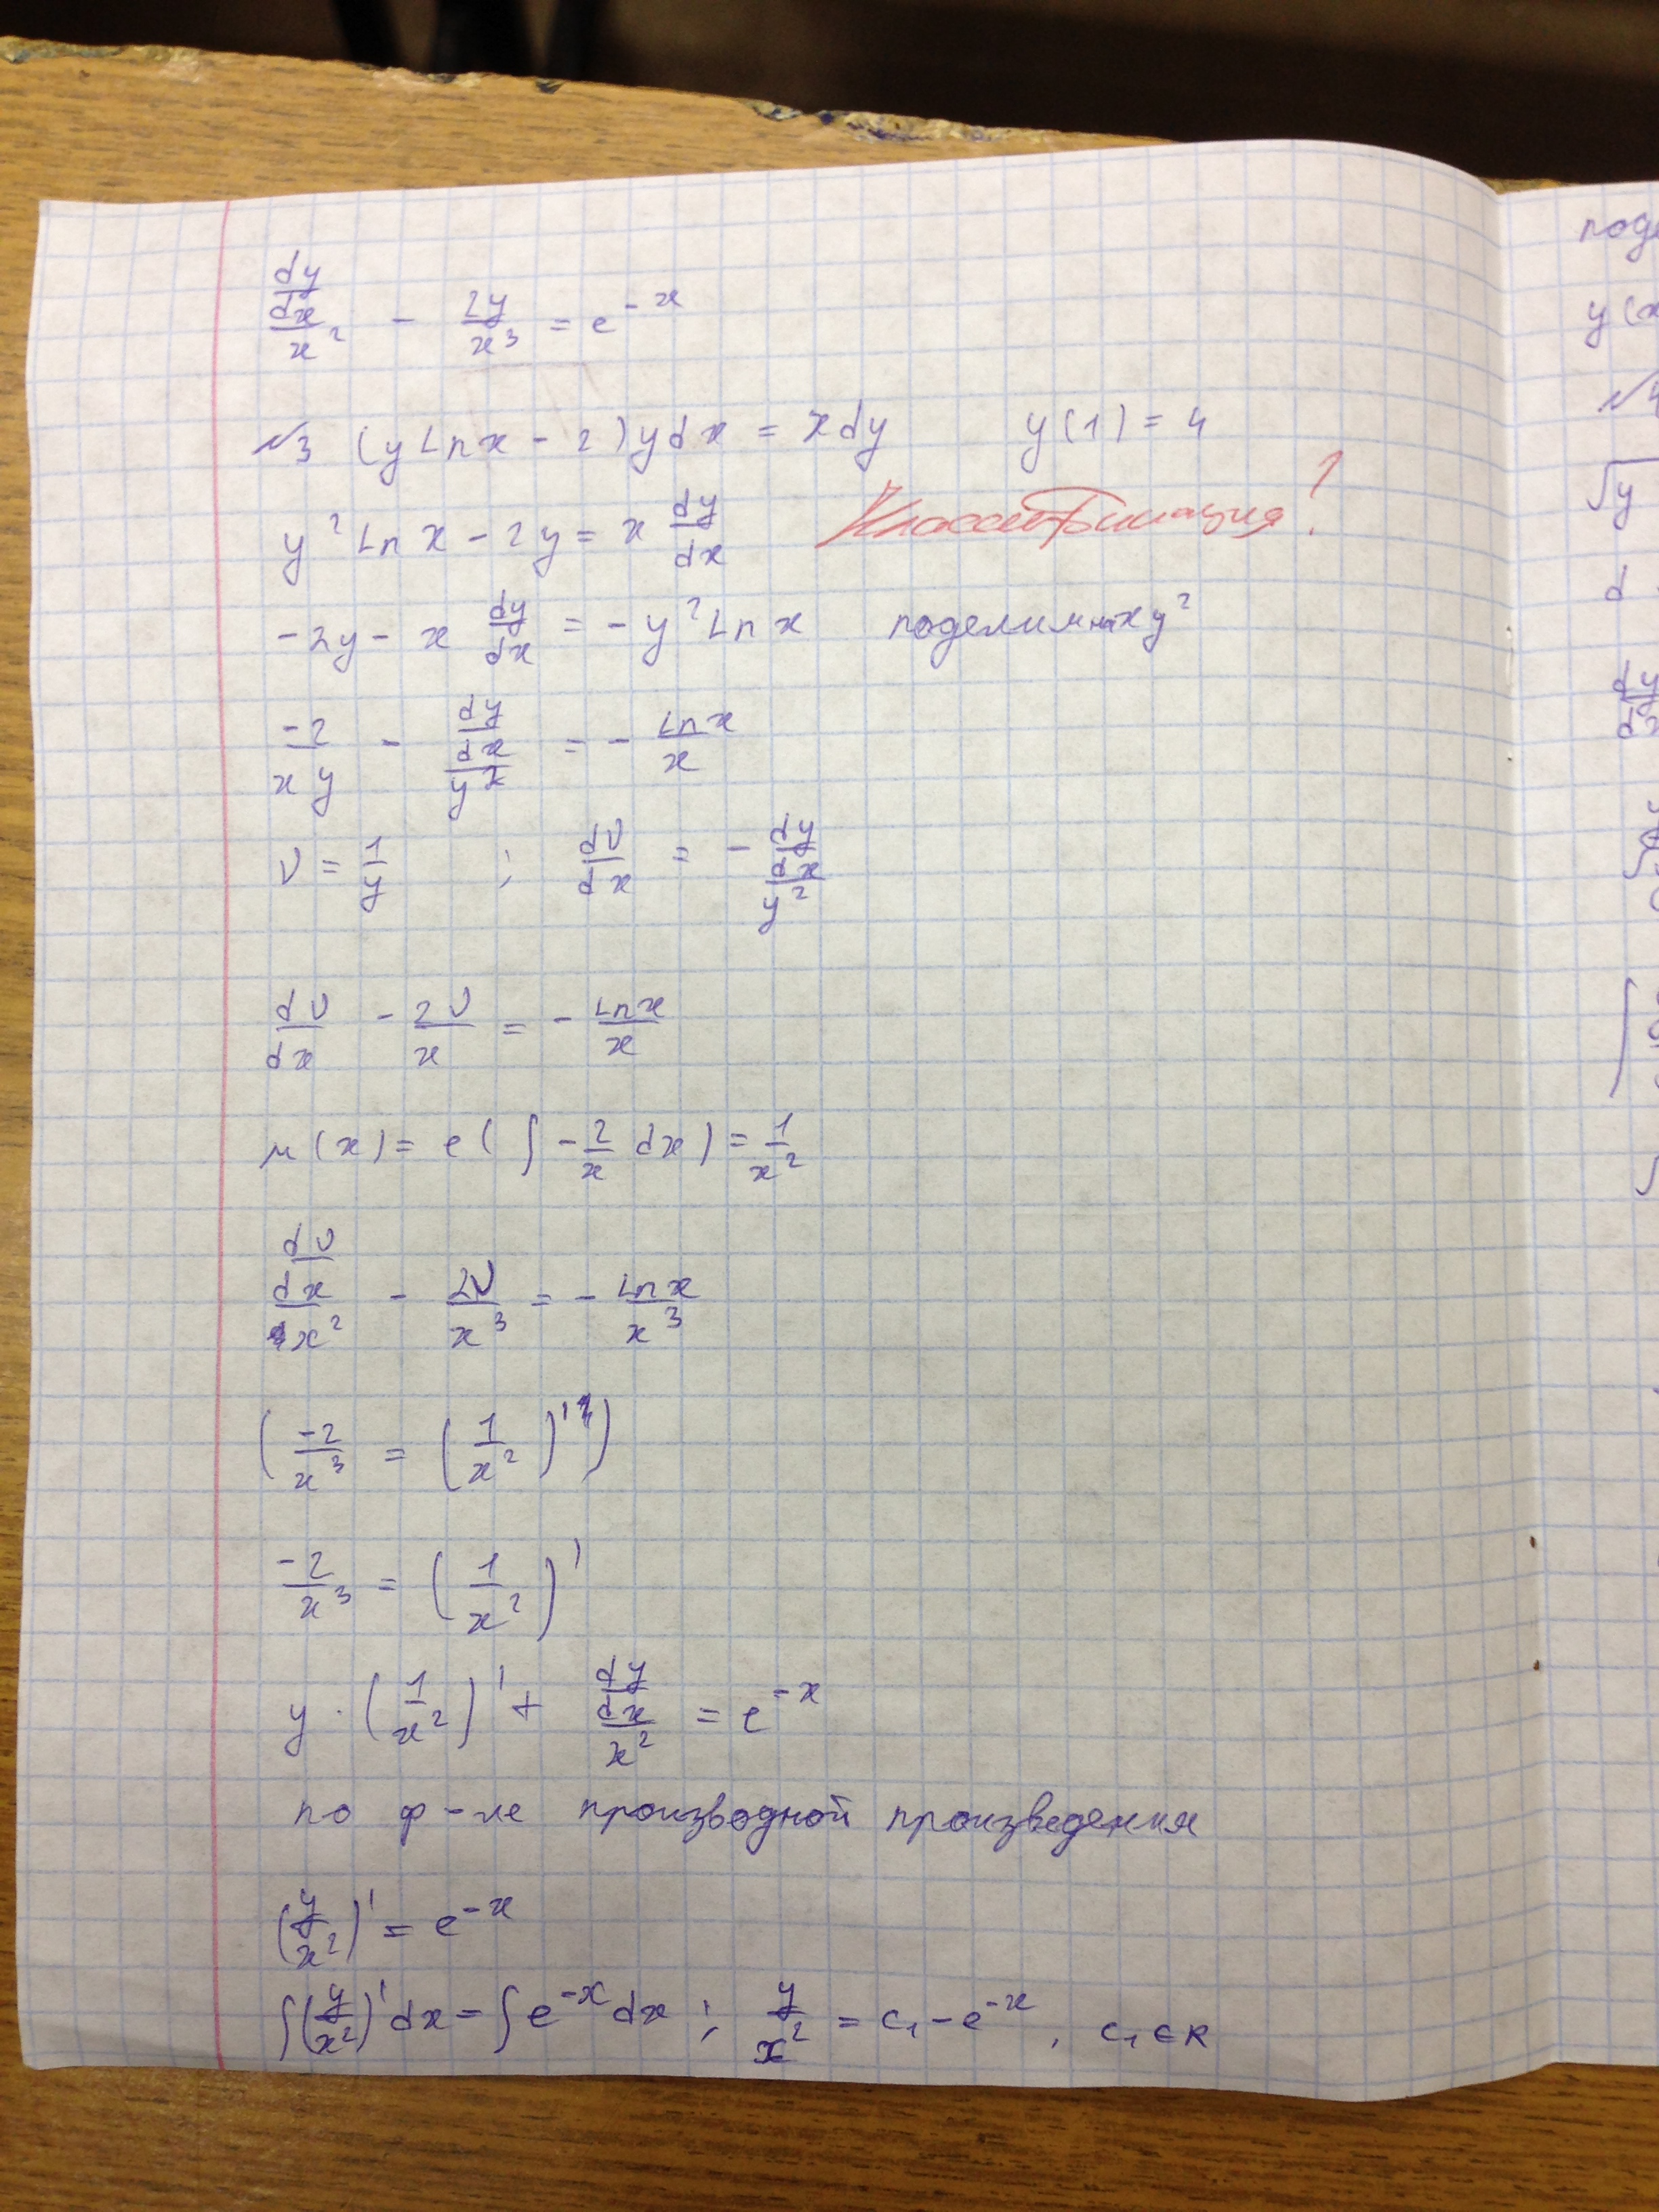 dy/dx/x² - 2y/x³ = e^-x
№3 (y Ln x - 2) y dx = x dy y(1) = 4
Классификация?
y² Ln x - 2y = x dy/dx
-2y - x dy/dx = - y² Ln x поделим на x y²
-2/xy - dy/dx/y² = - Ln x/x
ν = 1/y ; dν/dx = - dy/dx/y²
dν/dx - 2ν/x = - Ln x/x
μ(x) = e(∫ -2/x dx) = 1/x²
dν/dx/x² - 2ν/x³ = - Ln x/x³
(-2/x³ = (1/x²)')
-2/x³ = (1/x²)'
y · (1/x²)' + dy/dx/x² = e^-x
по ф-ле производной произведения
(y/x²)' = e^-x
∫(y/x²)' dx = ∫e^-x dx ; y/x² = c₁ - e^-x , c₁ ∈ R
y(x
√y
d
dy